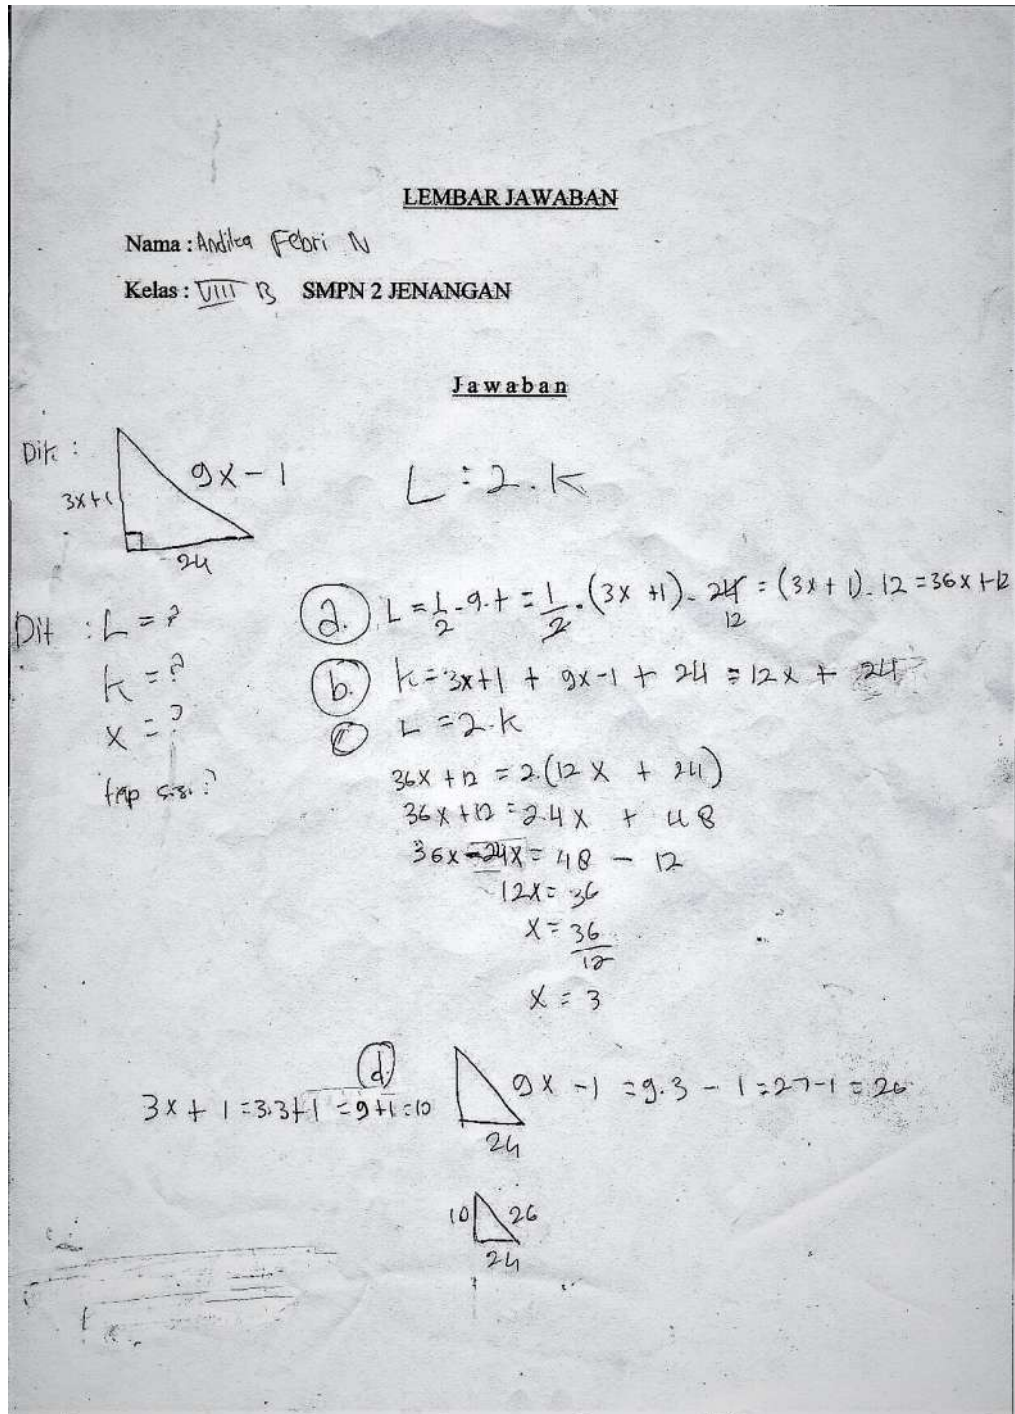 LEMBAR JAWABAN
Nama : Andika Febri N
Kelas : VIII B SMPN 2 JENANGAN
Jawaban
Dik :
3x+1
9x-1
24
L = 2.k
Dit : L = ?
k = ?
x = ?
tiap sisi ?
a. L = 1/2 . a.t = 1/2 . (3x +1) . 24 = (3x + 1) . 12 = 36x + 12
12
b. k = 3x+1 + 9x-1 + 24 = 12x + 24
c L = 2.k
36x + 12 = 2.(12x + 24)
36x + 12 = 24x + 48
36x - 24x = 48 - 12
12x = 36
x = 36/12
x = 3
d.
3x + 1 = 3.3+1 = 9+1 = 10
9x - 1 = 9.3 - 1 = 27-1 = 26
24
10 26
24